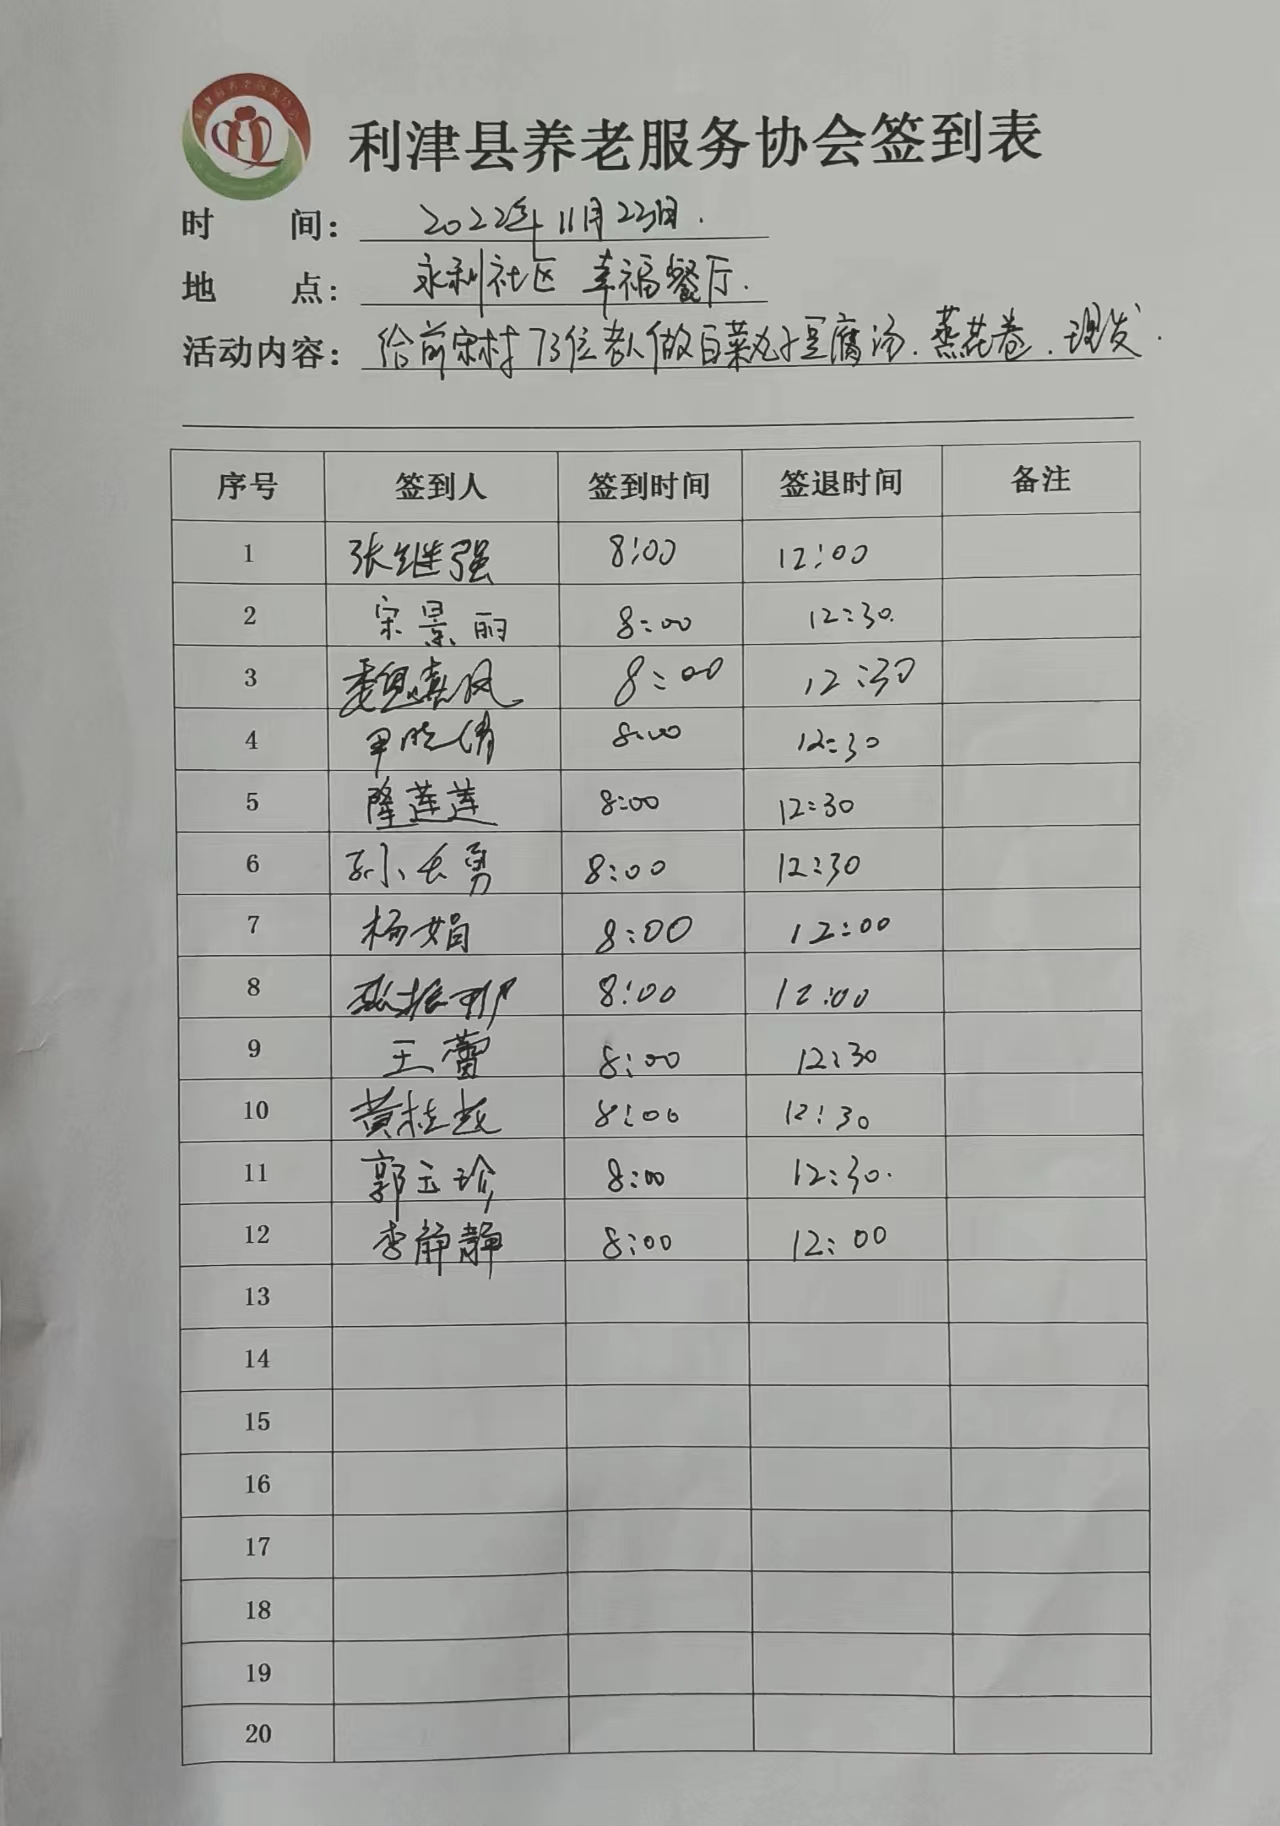 利津县养老服务协会签到表
时 间: 2022年11月22日.
地 点: 永利社区 幸福餐厅.
活动内容: 给前宋村73位老人做白菜丸子豆腐汤.蒸花卷.理发.
序号 签到人 签到时间 签退时间 备注
1 张继强 8:00 12:00
2 宋景丽 8:00 12:30.
3 魏真风 8:00 12:30
4 晓倩 8:00 12:30
5 隆莲莲 8:00 12:30
6 孙长勇 8:00 12:30
7 杨娟 8:00 12:00
8 8:00 12:00
9 王蕾 8:00 12:30
10 黄桂 8:00 12:30
11 郭玉珍 8:00 12:30.
12 李静静 8:00 12:00
13
14
15
16
17
18
19
20